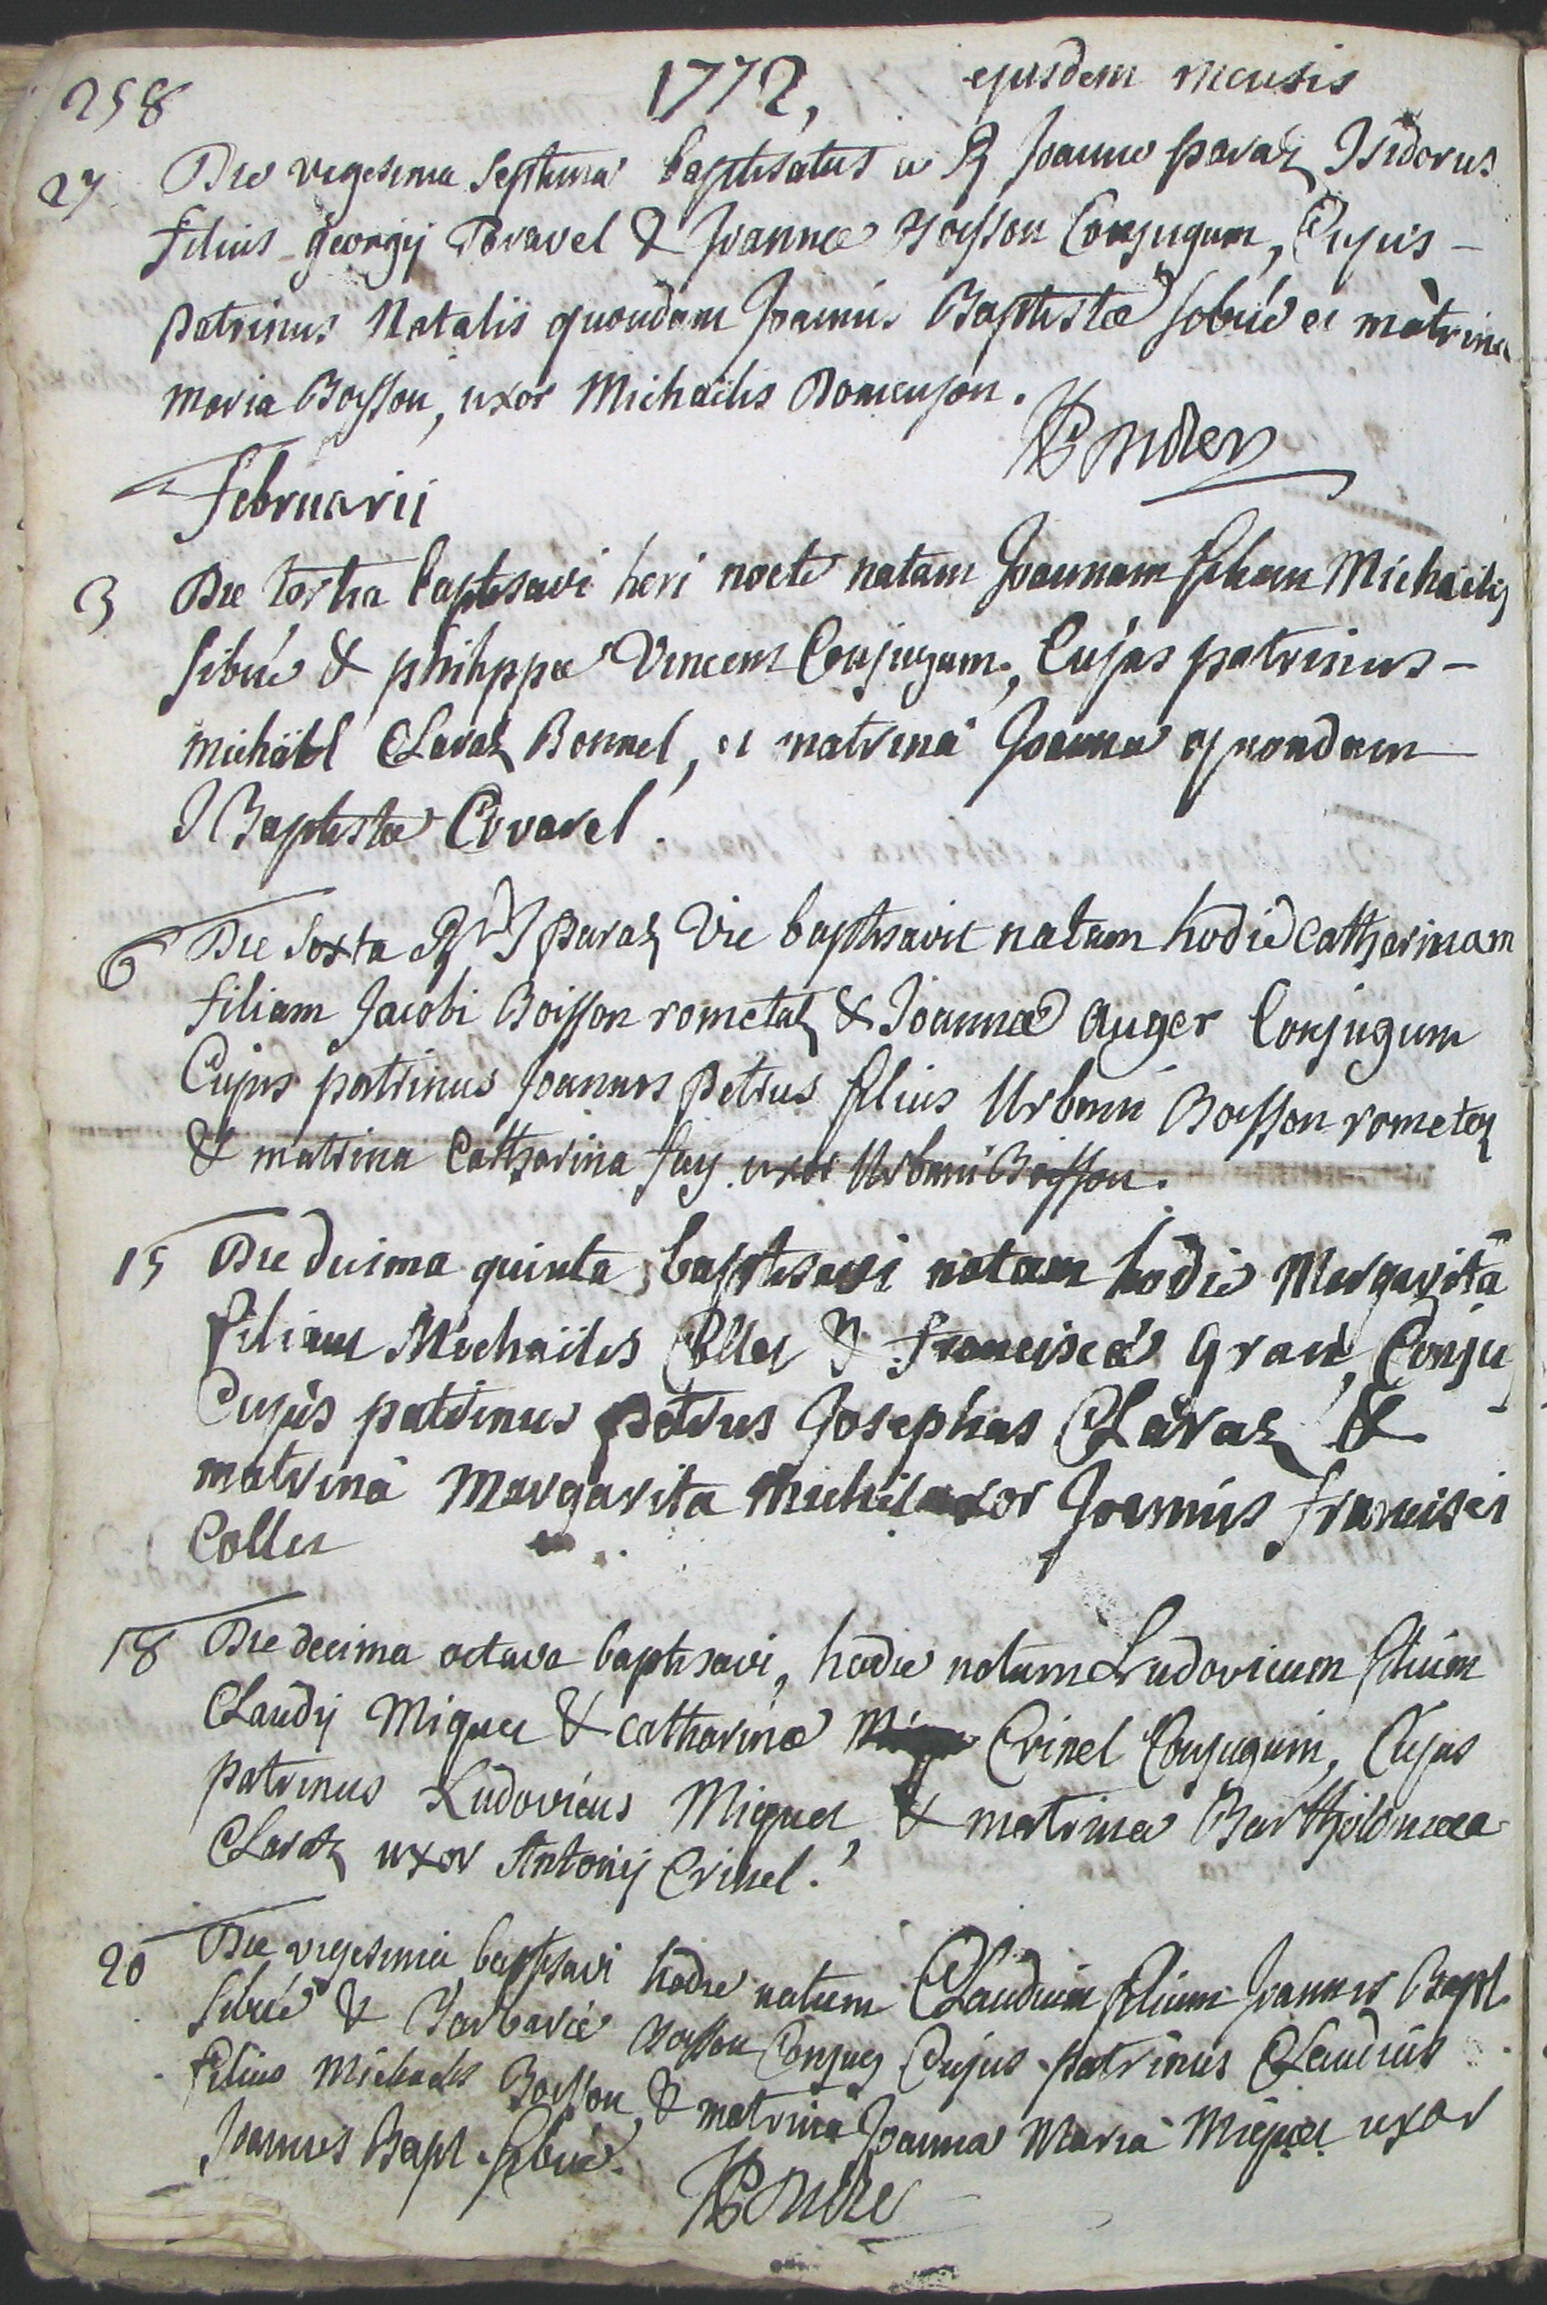 258 1772, ejusdem mensis
27 Die vigesima septima baptisatus a R Joanne paraz Isidorus
filius georgij Paravel & Joannæ Boisson Conjugum, Cujus -
patrinus Natalis quondam Joannis Baptistæ sibué et matrina
maria Boisson, uxor Michaëlis Domenjon.
februarij
3 Die tertia baptisavi heri nocte natam Joannam filiam Michaëlis
sibué & philippæ Vincent Conjugum, Cujas patrinus -
michaël Claraz Bonnel, et matrina Joanna quondam
J Baptistæ Covarel.
6 Die sexta Rd J paraz Vic baptisavit natam hodie Catharinam
filiam Jacobi Boisson rometaz & Joannæ auger Conjugum
Cujus patrinus Joannes petrus filius Urbani Boisson rometaz
& matrina Catharina fay uxor Urbani Boisson.
15 Die decima quinta baptisavi natam hodie Margaritā
filiam Michaëlis Collet & franciscæ Grand, Conju
Cujus patrinus petrus Josephus Claraz &
matrina Margarita uxor Joannis francisci
Collet
18 Die decima octava baptisavi, hodie natum Ludovicum filium
Claudij Miguet & catharinæ Crinel Conjugum, Cujus
patrinus Ludovicus Miguet, & matrina Bartholomæa
Claraz uxor Antonij Crinel.
20 Die vigesima baptisavi hodie natum Claudium filium Joannis Bapt.
sibué & Barbaræ Boisson Conjug Cujus patrinus Claudius
filius Michaelis Boisson, & matrina Joanna Maria Miguet uxor
Joannis Bapt. sibué.